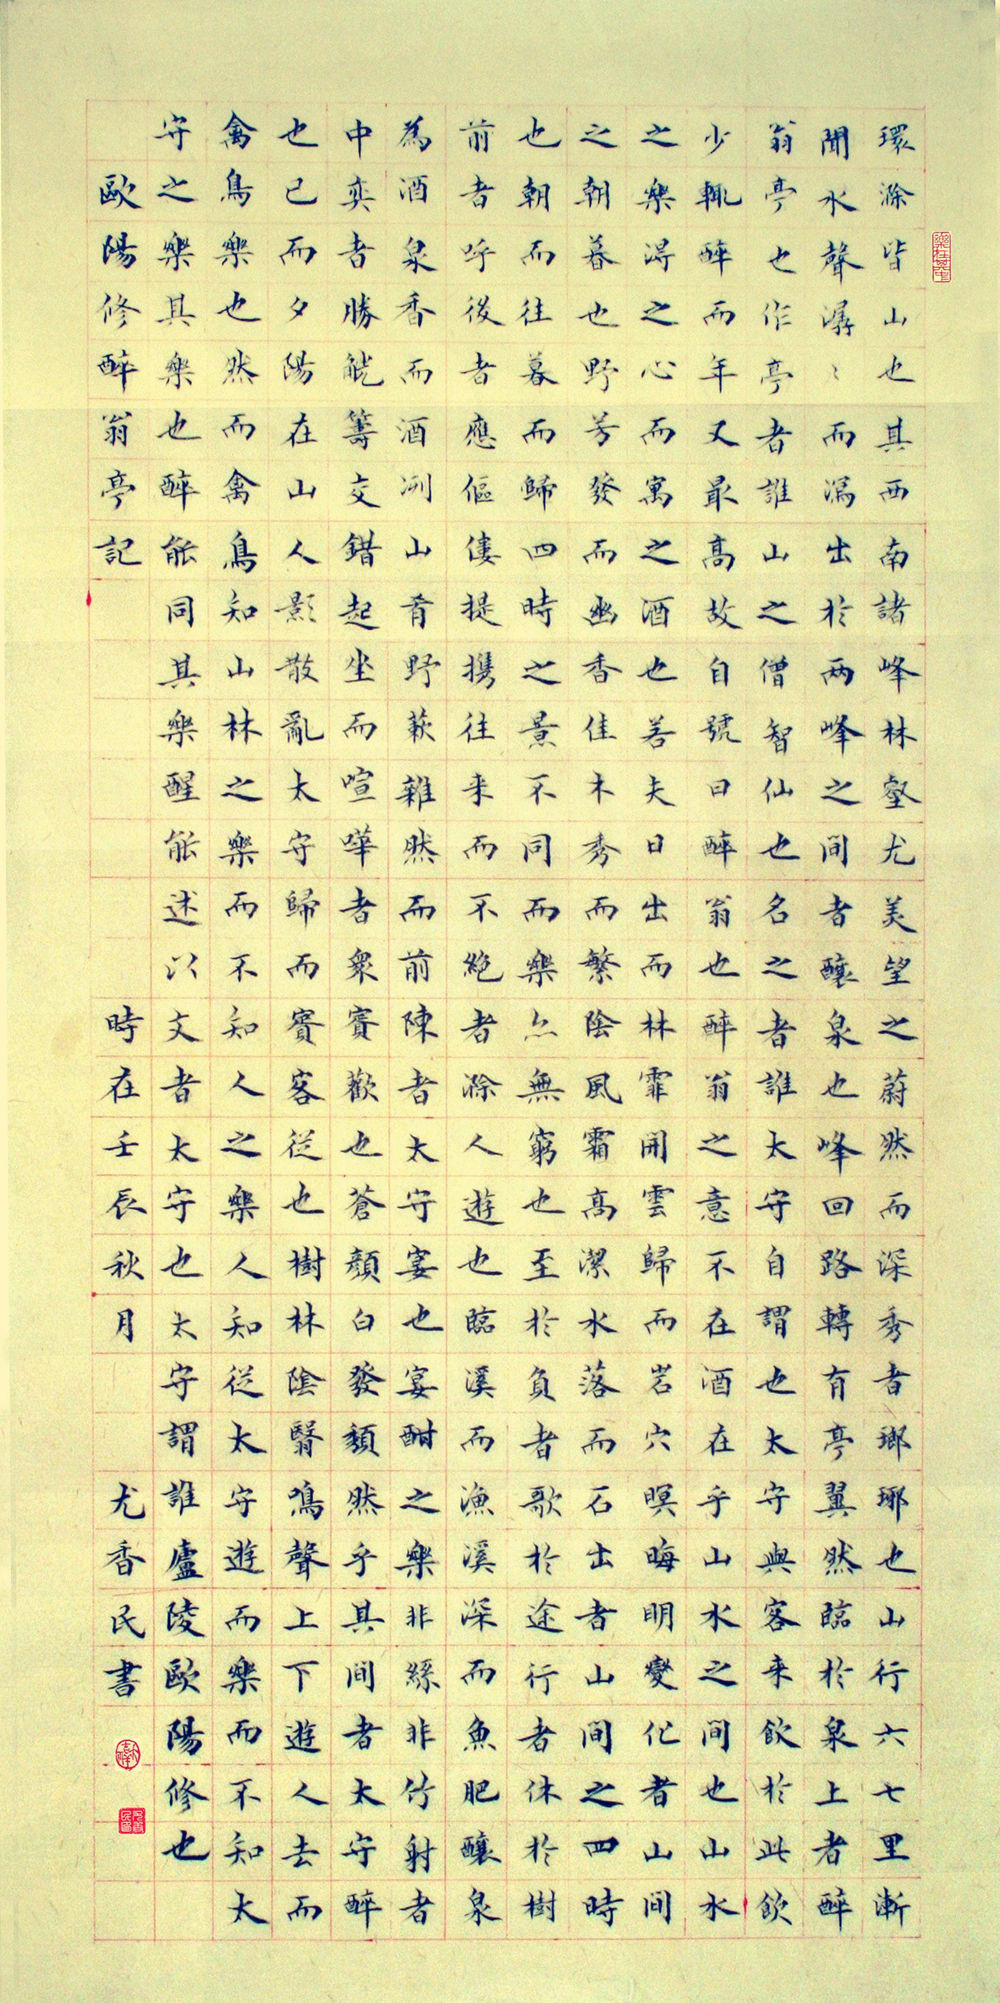 環滁皆山也其西南諸峰林壑尤美望之蔚然而深秀者瑯琊也山行六七里漸
聞水聲潺〻而瀉出於兩峰之間者釀泉也峰回路轉有亭翼然臨於泉上者醉
翁亭也作亭者誰山之僧智仙也名之者誰太守自謂也太守與客来飲於此飲
少輒醉而年又最高故自號曰醉翁也醉翁之意不在酒在乎山水之間也山水
之樂得之心而寓之酒也若夫日出而林霏開雲歸而岩穴暝晦明變化者山間
之朝暮也野芳發而幽香佳木秀而繁陰風霜高潔水落而石出者山間之四時
也朝而往暮而歸四時之景不同而樂亦無窮也至於負者歌於途行者休於樹
前者呼後者應傴僂提携往来而不絶者滁人遊也臨溪而漁溪深而魚肥釀泉
為酒泉香而酒洌山肴野蔌雜然而前陳者太守宴也宴酣之樂非絲非竹射者
中奕者勝觥籌交錯起坐而喧嘩者衆賓歡也蒼顏白發頹然乎其間者太守醉
也已而夕陽在山人影散亂太守歸而賓客從也樹林陰翳鳴聲上下遊人去而
禽鳥樂也然而禽鳥知山林之樂而不知人之樂人知從太守遊而樂而不知太
守之樂其樂也醉能同其樂醒能述以文者太守也太守謂誰廬陵歐陽修也
歐陽修醉翁亭記 時在壬辰秋月 尤香民書
樂在其中